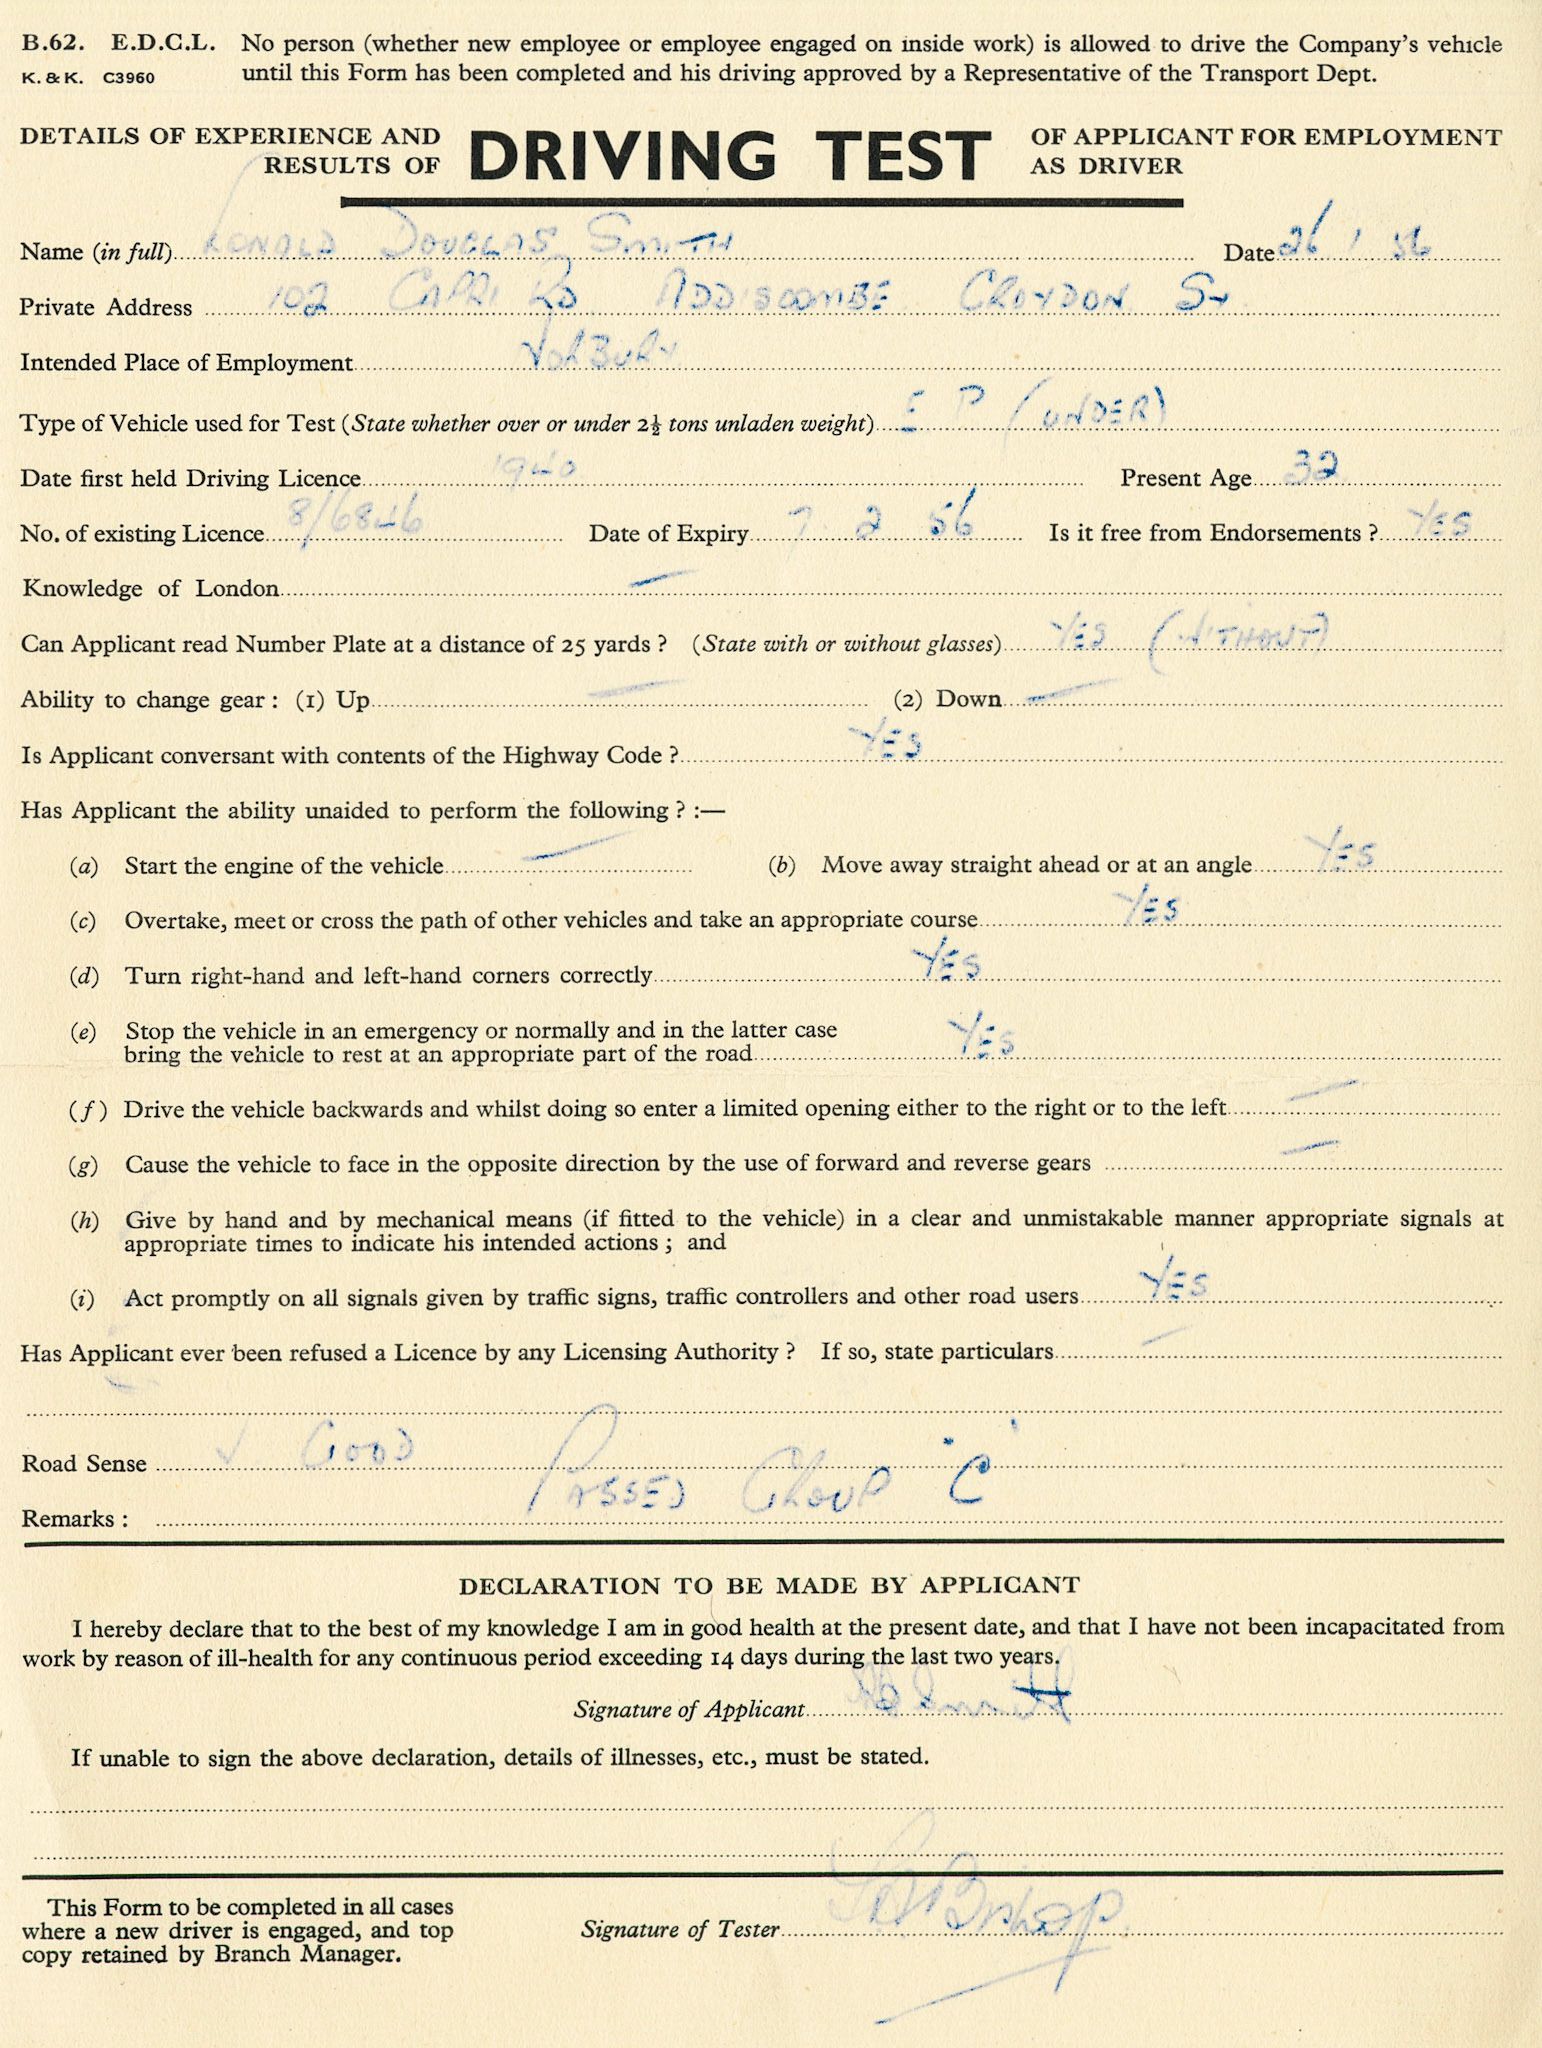 B.62. E.D.C.L. No person (whether new employee or employee engaged on inside work) is allowed to drive the Company's vehicle
K. & K. C3960 until this Form has been completed and his driving approved by a Representative of the Transport Dept.
DETAILS OF EXPERIENCE AND RESULTS OF DRIVING TEST OF APPLICANT FOR EMPLOYMENT AS DRIVER
Name (in full) DOUGLAS SMITH Date 26 1 56
Private Address 102 CAPRI RD ADDISCOMBE CROYDON Sy
Intended Place of Employment
Type of Vehicle used for Test (State whether over or under 2½ tons unladen weight) E P (UNDER)
Date first held Driving Licence 1940 Present Age 32
No. of existing Licence 8/6846 Date of Expiry 7 2 56 Is it free from Endorsements ? YES
Knowledge of London —
Can Applicant read Number Plate at a distance of 25 yards ? (State with or without glasses) YES (WITHOUT)
Ability to change gear : (1) Up — (2) Down —
Is Applicant conversant with contents of the Highway Code ? YES
Has Applicant the ability unaided to perform the following ? :—
(a) Start the engine of the vehicle — (b) Move away straight ahead or at an angle YES
(c) Overtake, meet or cross the path of other vehicles and take an appropriate course YES
(d) Turn right-hand and left-hand corners correctly YES
(e) Stop the vehicle in an emergency or normally and in the latter case
bring the vehicle to rest at an appropriate part of the road YES
(f) Drive the vehicle backwards and whilst doing so enter a limited opening either to the right or to the left —
(g) Cause the vehicle to face in the opposite direction by the use of forward and reverse gears —
(h) Give by hand and by mechanical means (if fitted to the vehicle) in a clear and unmistakable manner appropriate signals at
appropriate times to indicate his intended actions ; and
(i) Act promptly on all signals given by traffic signs, traffic controllers and other road users YES
Has Applicant ever been refused a Licence by any Licensing Authority ? If so, state particulars —
Road Sense ✓ GOOD
Remarks : PASSED GROUP "C"
DECLARATION TO BE MADE BY APPLICANT
I hereby declare that to the best of my knowledge I am in good health at the present date, and that I have not been incapacitated from
work by reason of ill-health for any continuous period exceeding 14 days during the last two years.
Signature of Applicant Smith
If unable to sign the above declaration, details of illnesses, etc., must be stated.
This Form to be completed in all cases
where a new driver is engaged, and top
copy retained by Branch Manager.
Signature of Tester Bishop